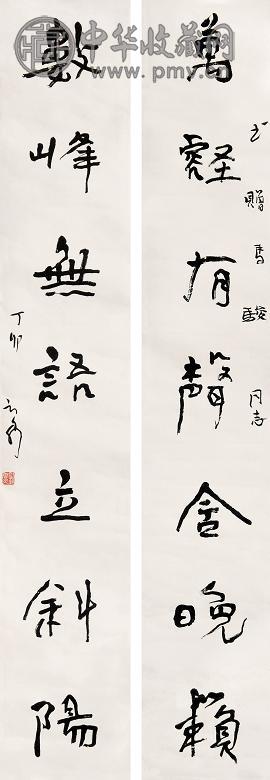 中华收藏网
www.pmy.cn
书贈馬駿同志
萬壑有聲含晚籟
數峰無語立斜陽
丁卯